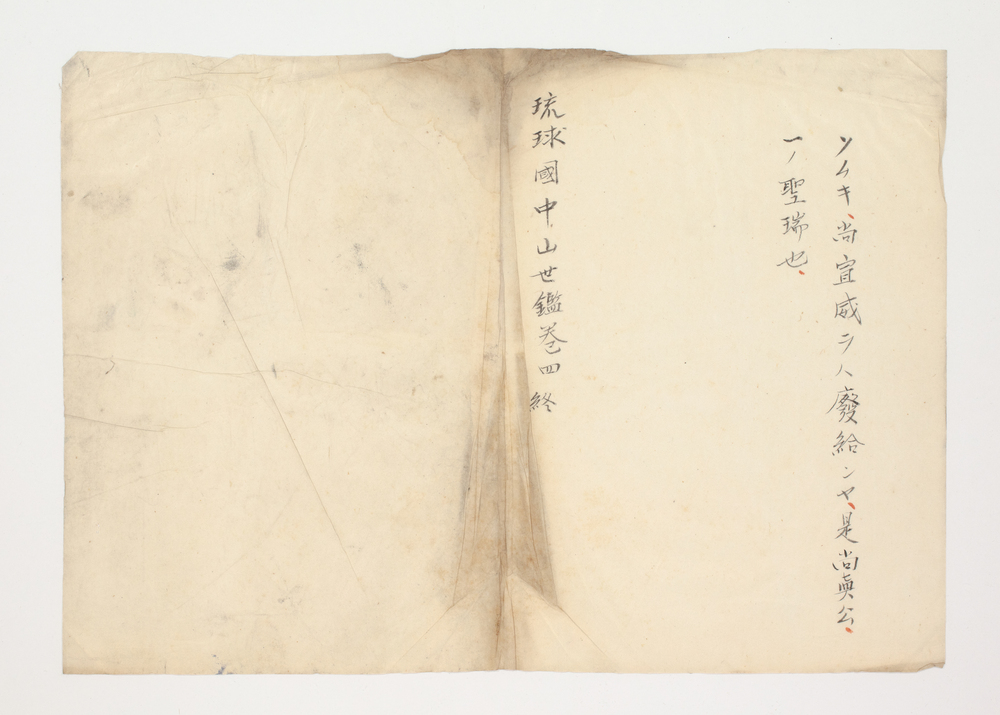 ソムキ、尚宣威ヲハ廢給ンヤ、是尚真公、
一ノ聖瑞也、
琉球國中山世鑑巻四終